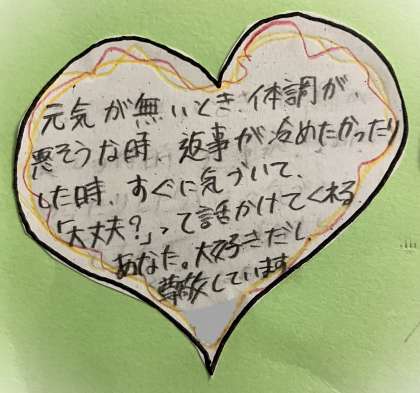 元気が無いとき、体調が、
悪そうな時、返事が冷めたかったり
した時、すぐに気づいて、
「大丈夫?」って話かけてくれる
あなた。大好きだし、
尊敬しています